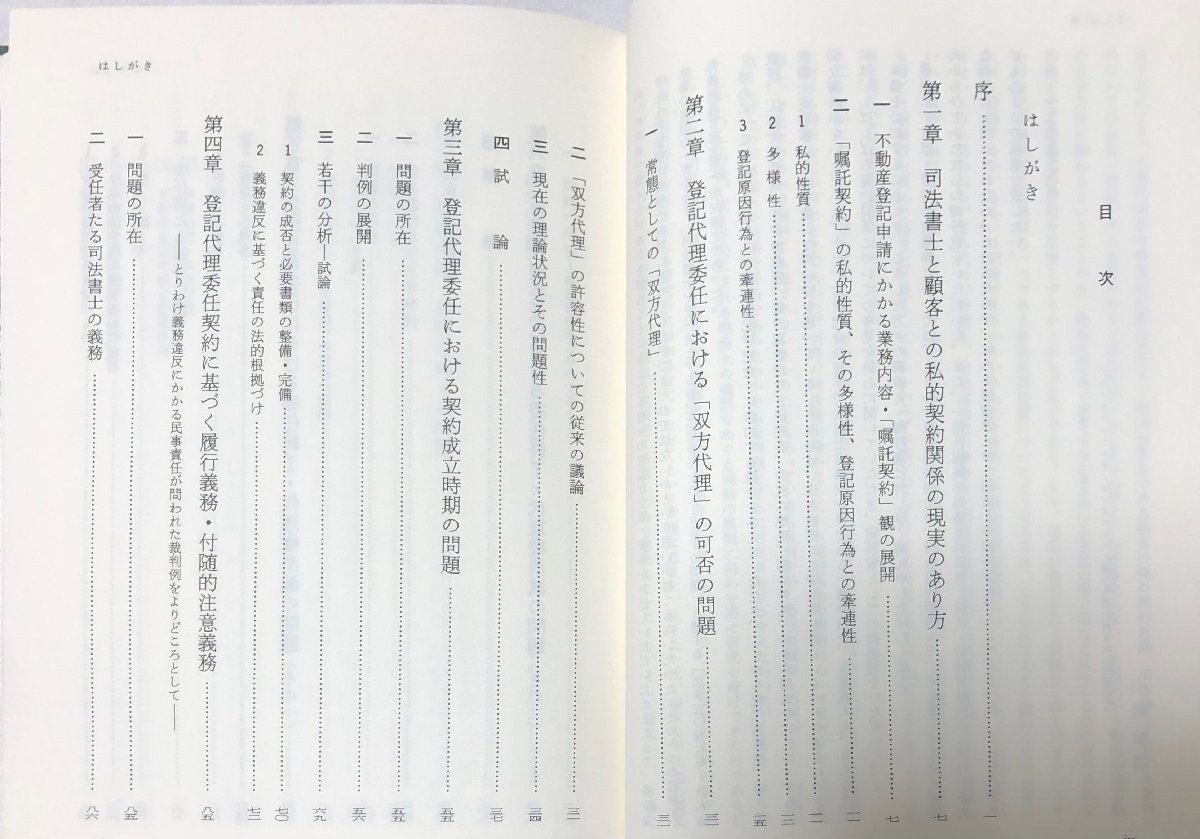 目次
はしがき
序……一
第一章 司法書士と顧客との私的契約関係の現実のあり方……七
一 不動産登記申請にかかる業務内容・「嘱託契約」観の展開……七
二 「嘱託契約」の私的性質、その多様性、登記原因行為との牽連性……一一
1 私的性質……一一
2 多様性……
3 登記原因行為との牽連性……一五
第二章 登記代理委任における「双方代理」の可否の問題……
一 常態としての「双方代理」……
はしがき
二 「双方代理」の許容性についての従来の議論……三一
三 現在の理論状況とその問題性……三四
四 試論……三七
第三章 登記代理委任における契約成立時期の問題……五五
一 問題の所在……五五
二 判例の展開……五六
三 若干の分析―試論……六九
1 契約の成否と必要書類の整備・完備……七〇
2 義務違反に基づく責任の法的根拠づけ……
第四章 登記代理委任契約に基づく履行義務・付随的注意義務……八五
――とりわけ義務違反にかかる民事責任が問われた裁判例をよりどころとして――
一 問題の所在……八五
二 受任者たる司法書士の義務……八六